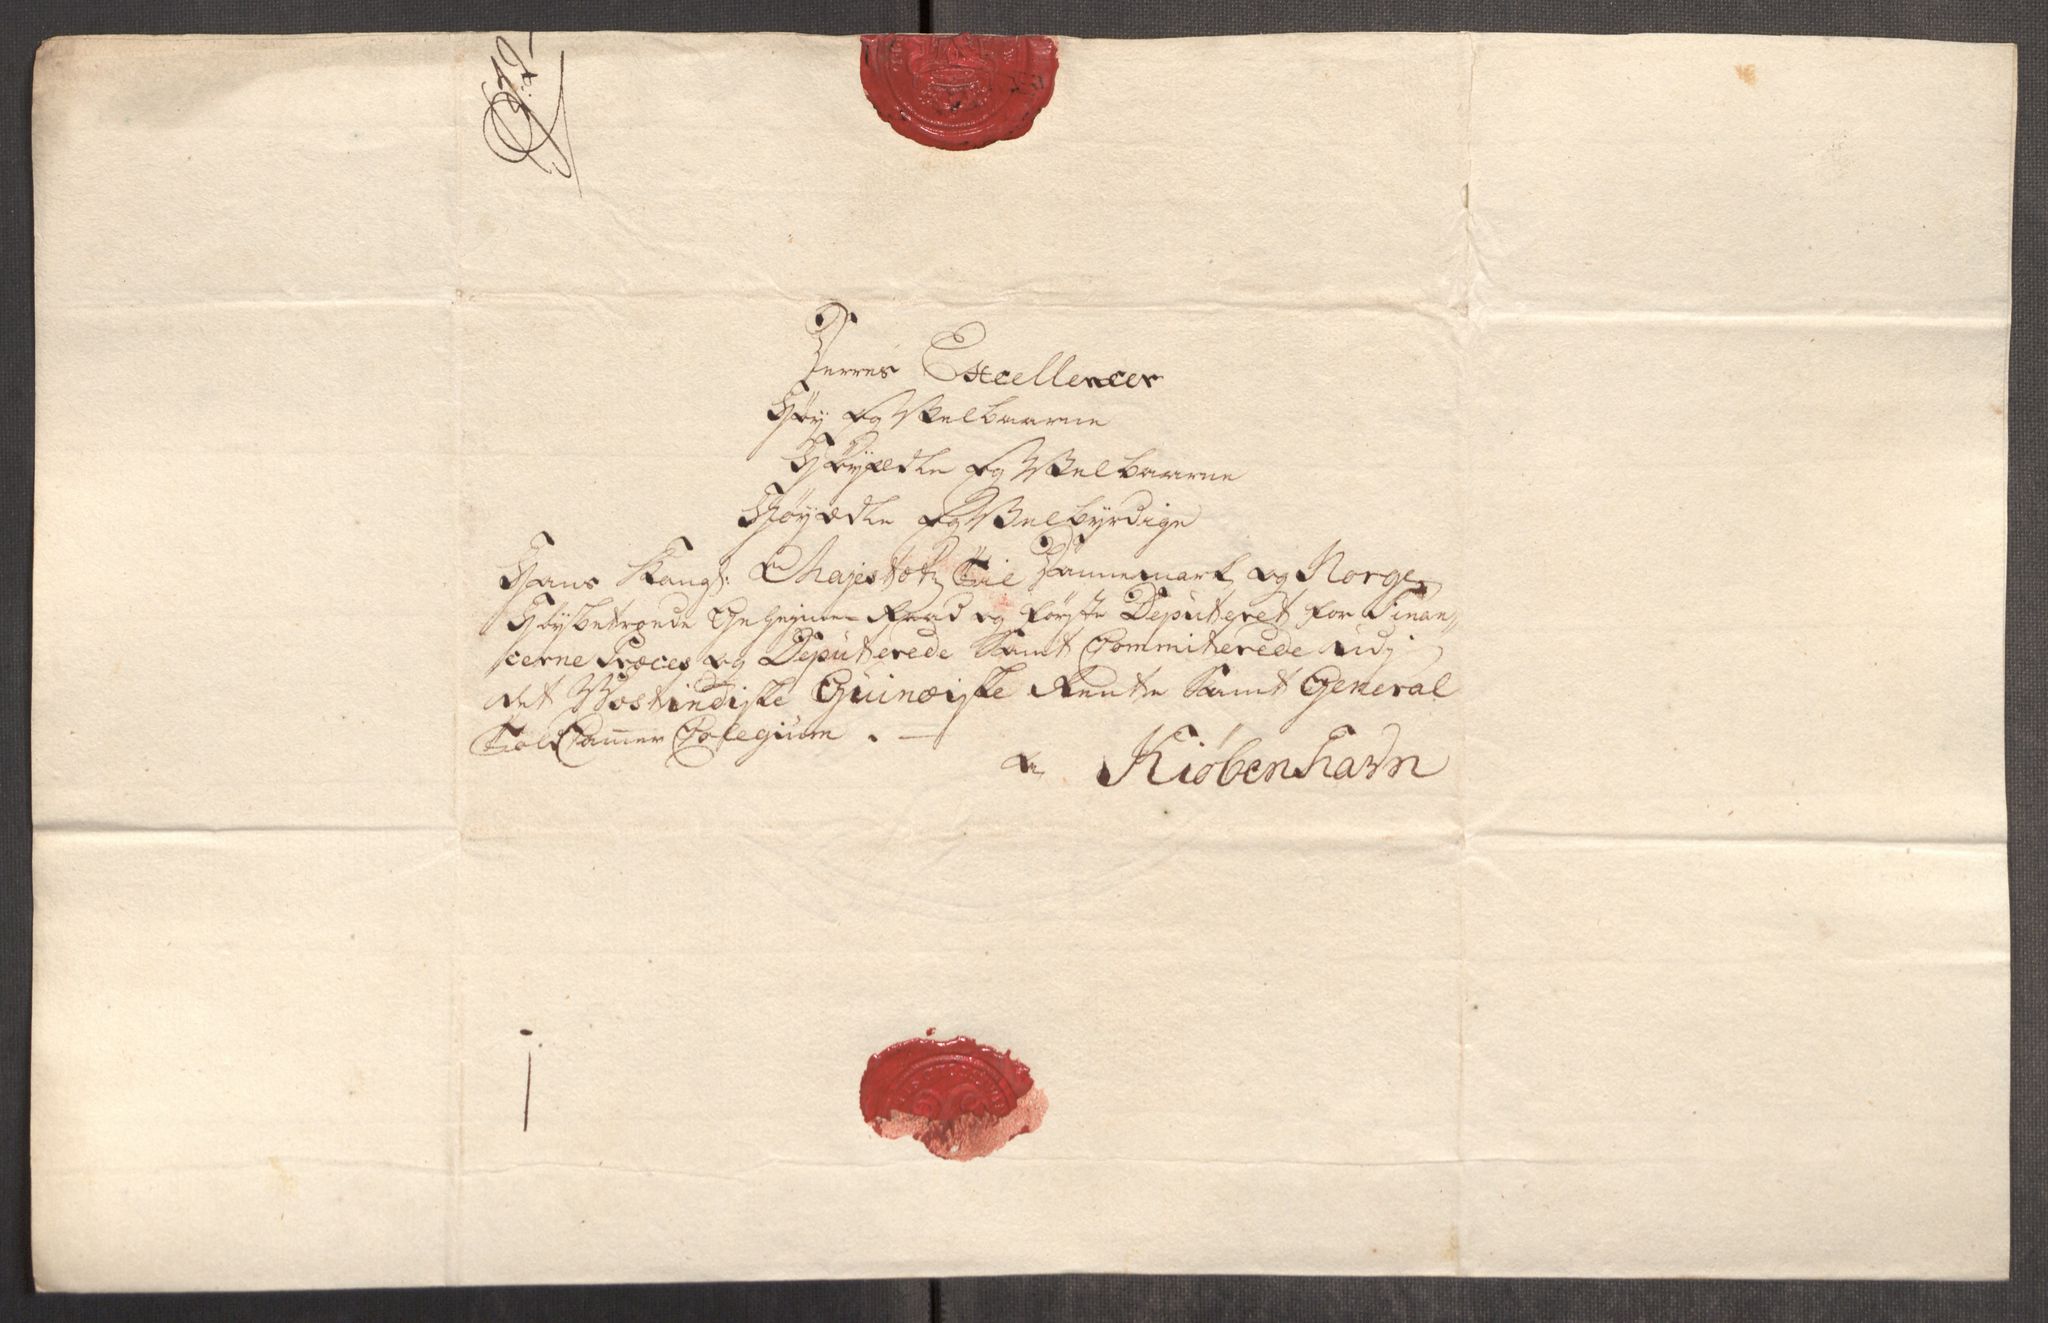 Derres Excellencer
Høy og Velbaarne
Høyædle og Velbaarne
Høyædle og Velbyrdige
Hans Kongl: Majestæts til Dannemark og Norge
Høybetroede Geheime-Raad og første Deputeret for Finan-
cerne Præces og Deputerede Samt Committerede udj
det Vestindiske Guinæiske Rente Samt General
Told Cammer Colegium . —
a Kiøbenhavn